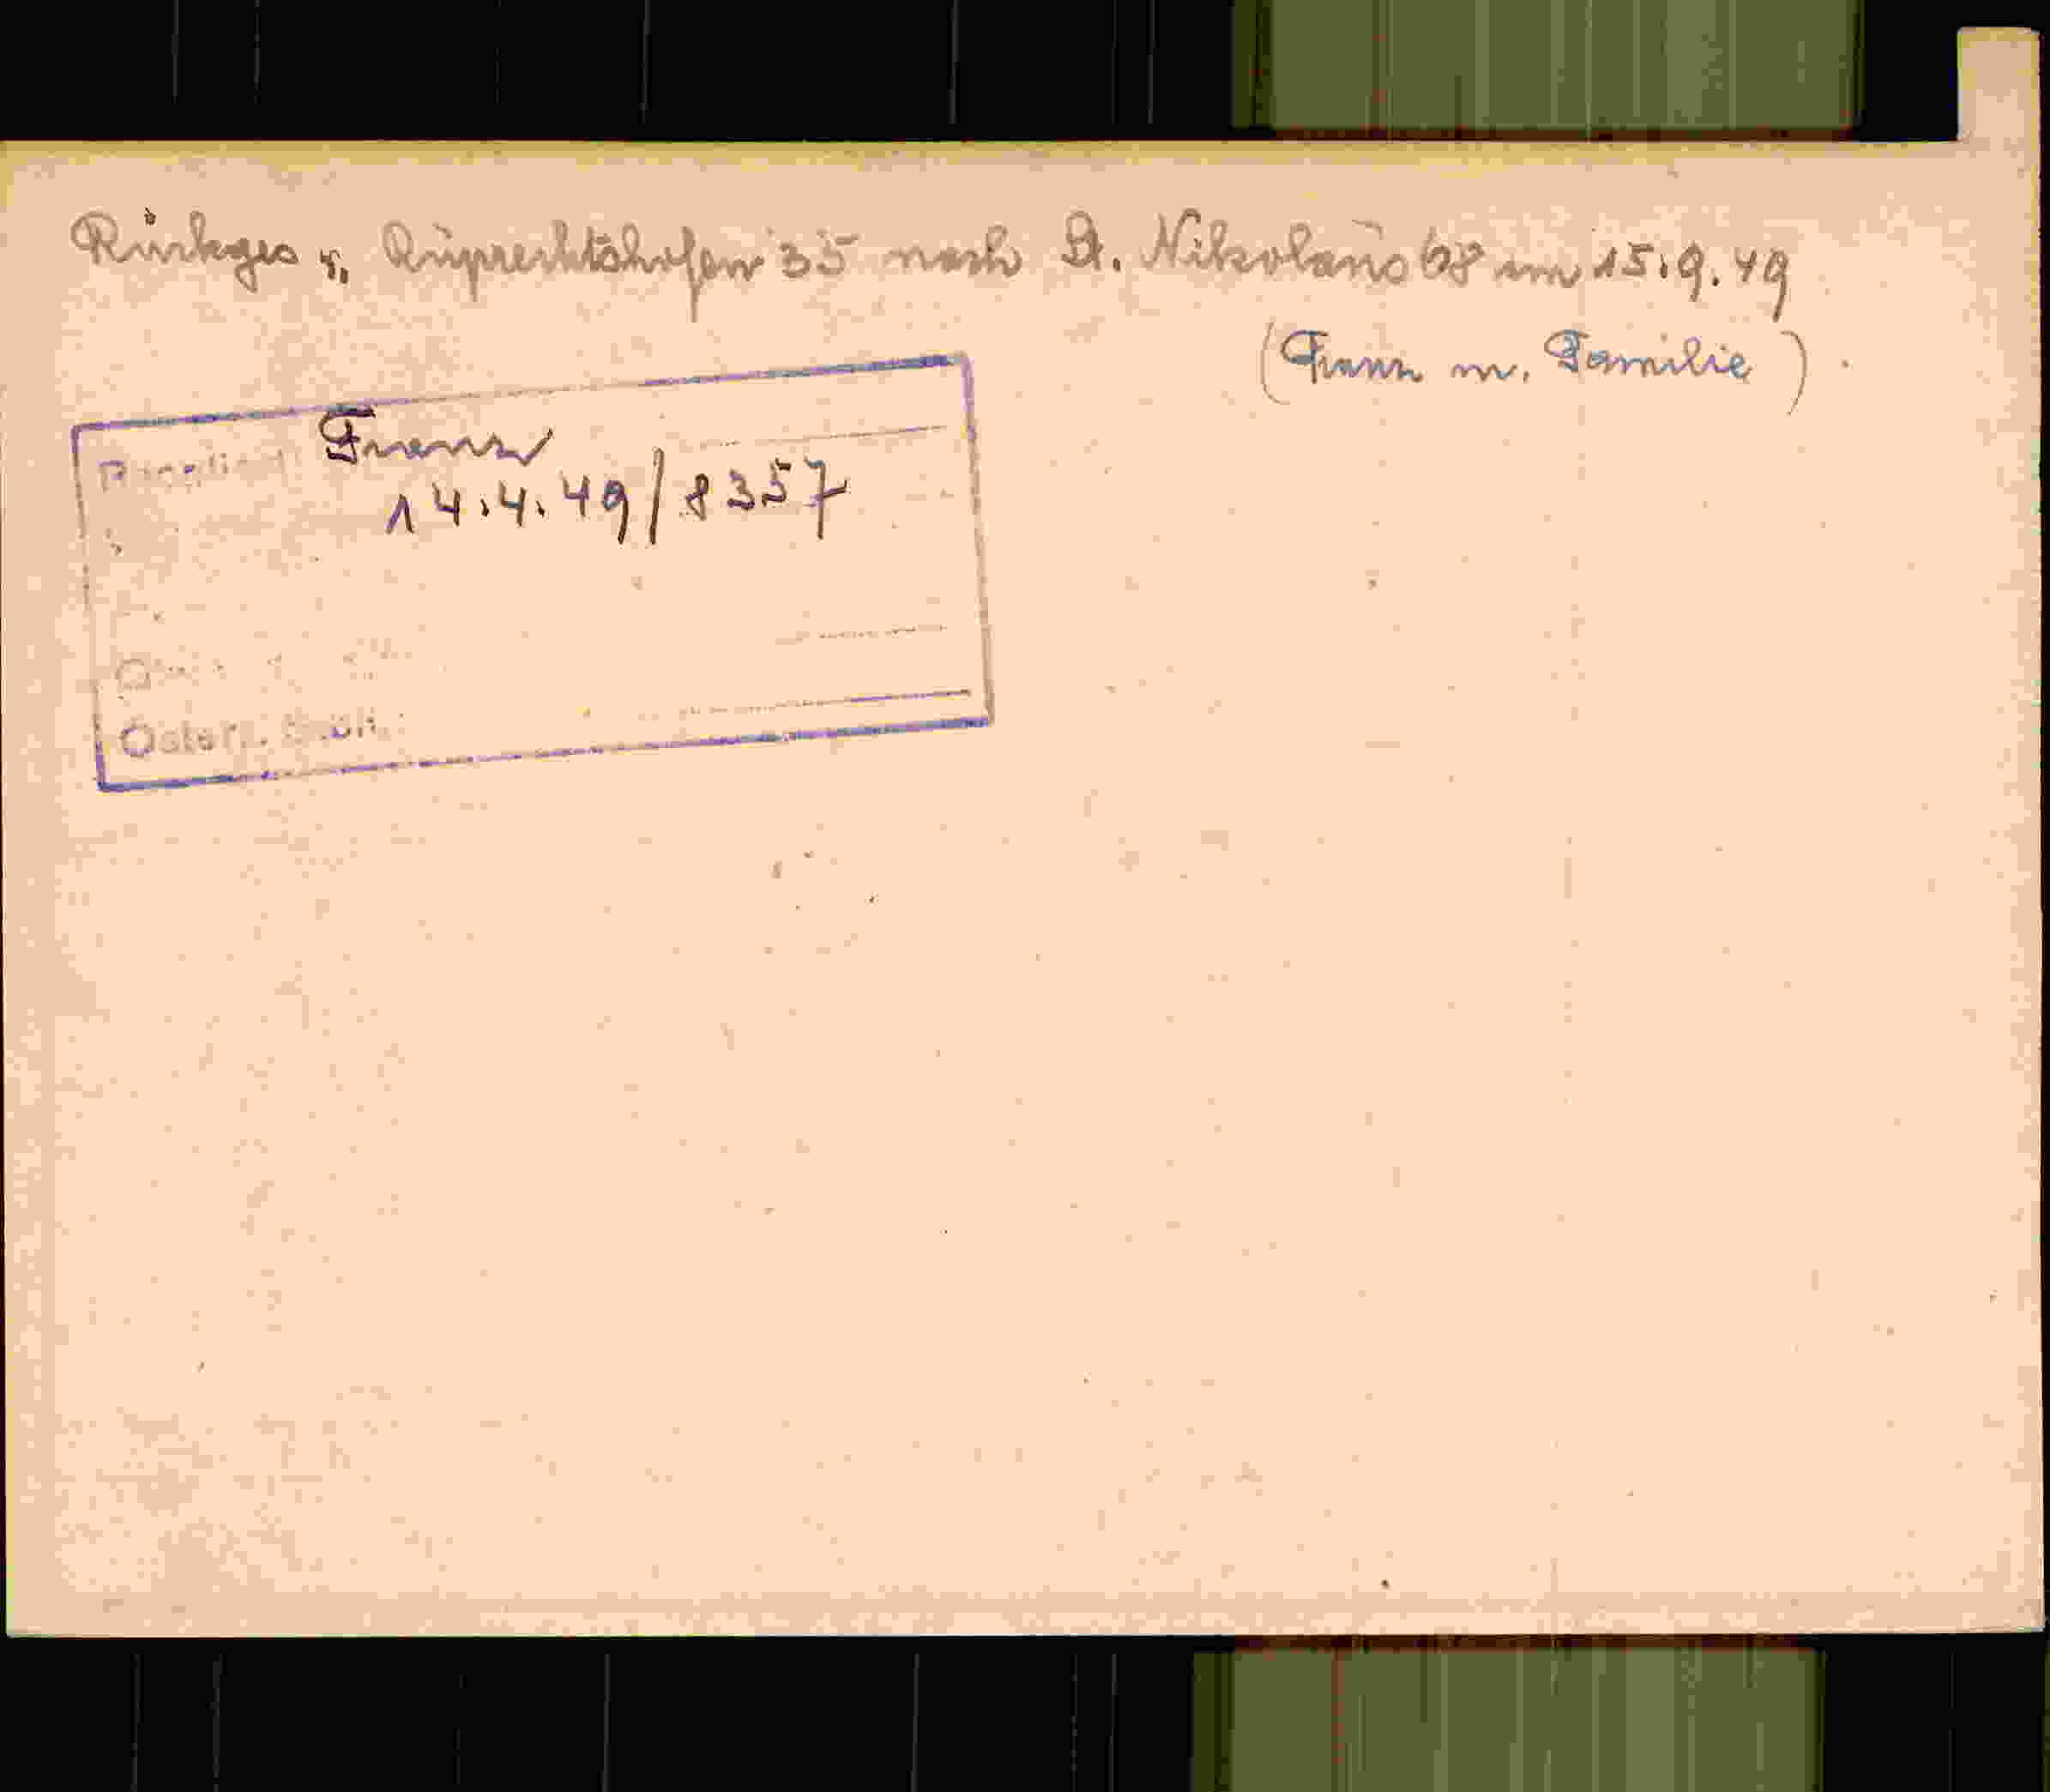 Rückges v. Ruprechtshofen 35 nach St. Nikolaus 68 am 15.9.49
(Franz m. Familie).
Franz
14.4.49/8357
Österr.